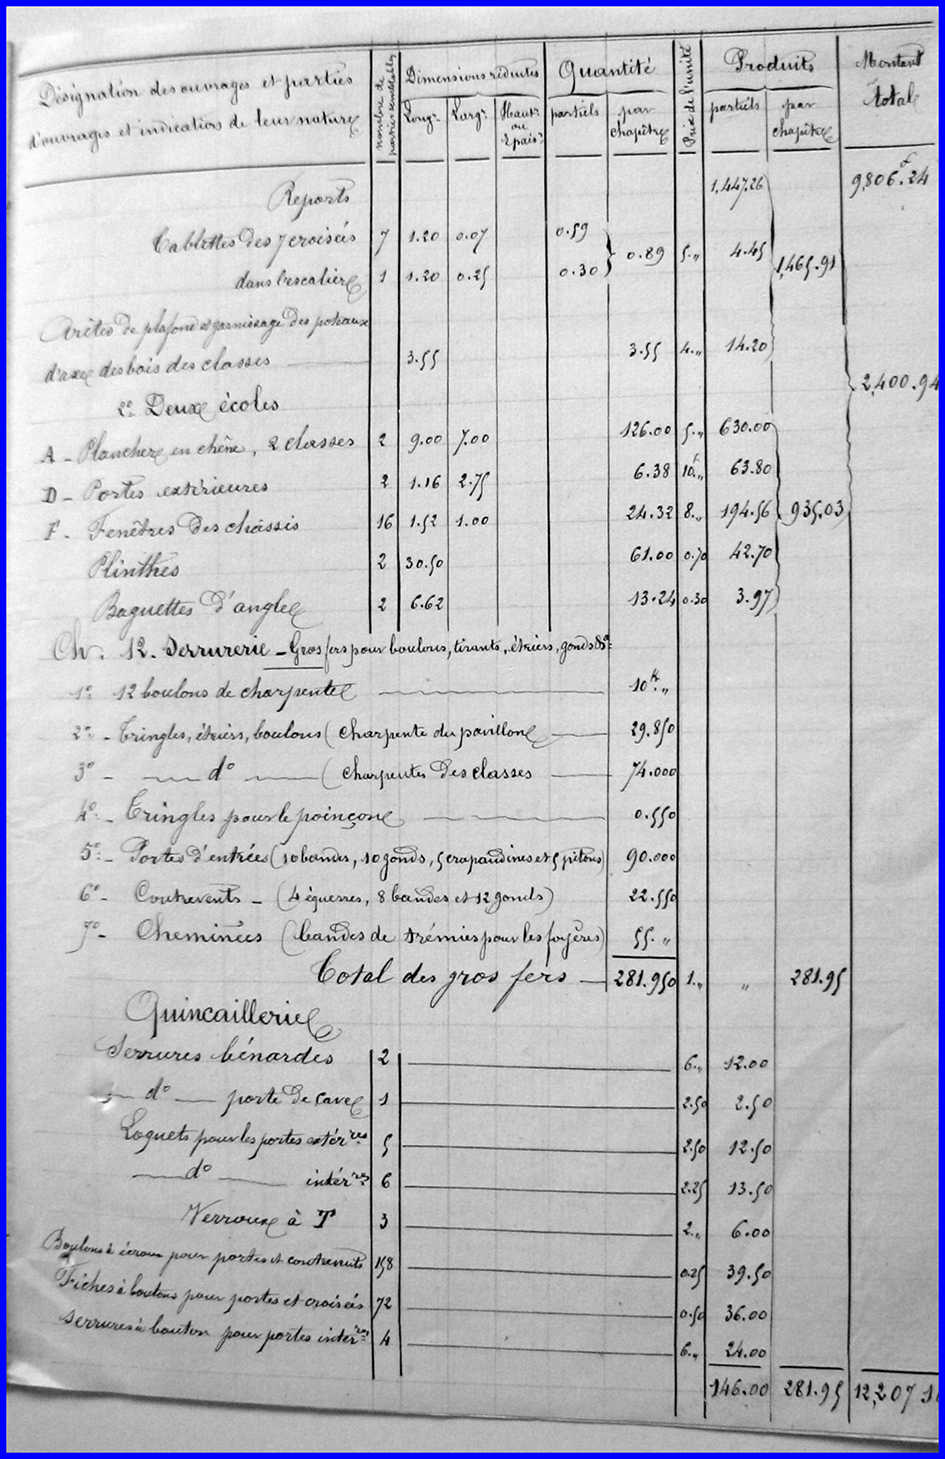 Désignation des ouvrages et parties d'ouvrages et indication de leur nature | nombre de parties semblables | Dimensions réduites | Quantité | Prix de l'unité | Produits | Montant total
Longr | Largr | Hautr ou Epaisr | partiels | par chapitre | partiels | par chapitre
Reports 1,447.26 9,806.f24
Tablettes des 7 croisées 7 1.20 0.07 0.59
0.89 5.„ 4.45 1,465.91
dans l'escalier 1 1.20 0.25 0.30
Arêtes de plafond et garnissage des poteaux
d'axe des bois des classes 3.55 3.55 4.„ 14.20
2,400.94
2º Deux écoles
A - Plancher en chêne, 2 classes 2 9.00 7.00 126.00 5.„ 630.00
D - Portes extérieures 2 1.16 2.75 6.38 10f„ 63.80
F - Fenêtres des châssis 16 1.52 1.00 24.32 8.„ 194.56 935.03
Plinthes 2 30.50 61.00 0.70 42.70
Baguettes d'angle 2 6.62 13.24 0.30 3.97
Ch. 12. Serrurerie - Gros fers pour boulons, tirants, étriers, gonds &a
1º 12 boulons de charpente 10k.„
2º - Tringles, étriers, boulons (charpente du pavillon 29.850
3º - dº (charpentes des classes 74.000
4º - Tringles pour le poinçon 0.550
5º - Portes d'entrées (10 bandes, 10 gonds, 5 crapaudines et 5 pitons) 90.000
6º - Contrevents - (4 équerres, 8 bandes et 12 gonds) 22.550
7º - Cheminées (bandes de trémies pour les foyères) 55.„
Total des gros fers 281.950 1.„ „ 281.95
Quincaillerie
Serrures bénardes 2 6.„ 12.00
dº porte de cave 1 2.50 2.50
Loquets pour les portes extérres 5 2.50 12.50
dº intérres 6 2.25 13.50
Verroux à T 3 2.„ 6.00
Boulons à écrou pour portes et contrevents 158 0.25 39.50
Fiches à boutons pour portes et croisées 72 0.50 36.00
Serrures à bouton pour portes intérres 4 6.„ 24.00
146.00 281.95 12,207